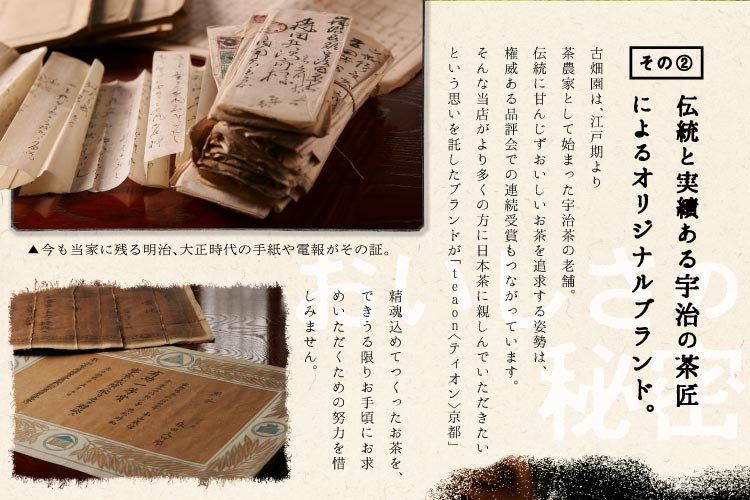 その②
伝統と実績ある宇治の茶匠
によるオリジナルブランド。
古畑園は、江戸期より
茶農家として始まった宇治茶の老舗。
伝統に甘んじずおいしいお茶を追求する姿勢は、
権威ある品評会での連続受賞もつながっています。
そんな当店がより多くの方に日本茶に親しんでいただきたい
という思いを託したブランドが「teaon〈ティオン〉京都」
おいしさの
秘密
▲今も当家に残る明治、大正時代の手紙や電報がその証。
精魂込めてつくったお茶を、
できうる限りお手頃にお求
めいただくための努力を惜
しみません。